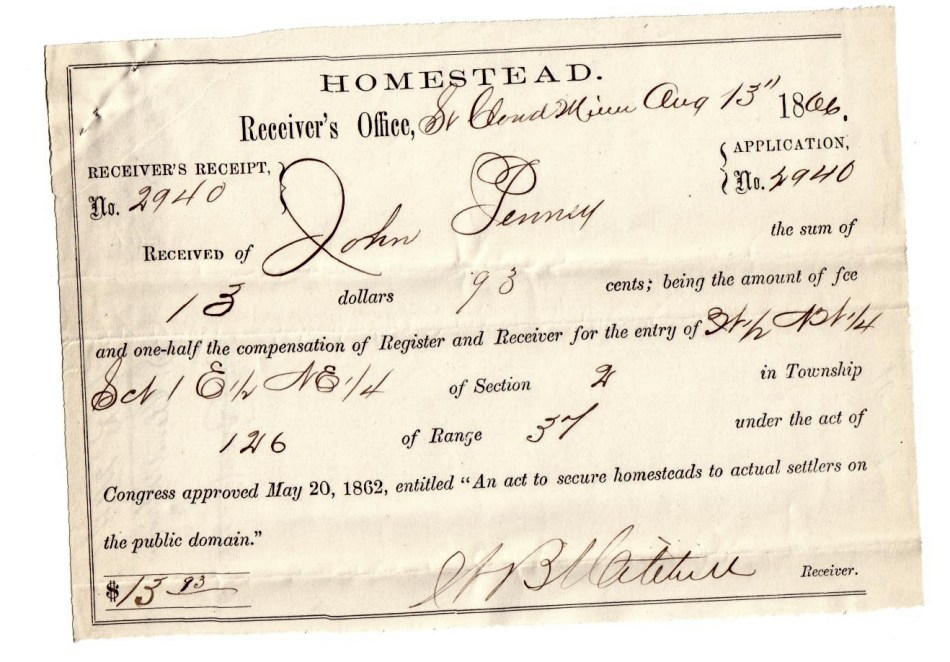 HOMESTEAD.
Receiver's Office, St Cloud Minn Aug 13" 1866.
RECEIVER'S RECEIPT, No. 2940
APPLICATION, No. 2940
RECEIVED of John Penney the sum of
13 dollars 93 cents; being the amount of fee
and one-half the compensation of Register and Receiver for the entry of W 1/2 NW 1/4
Sct 1 E 1/2 NE 1/4 of Section 2 in Township
126 of Range 37 under the act of
Congress approved May 20, 1862, entitled “An act to secure homesteads to actual settlers on
the public domain.”
$13 93 Mitchell Receiver.